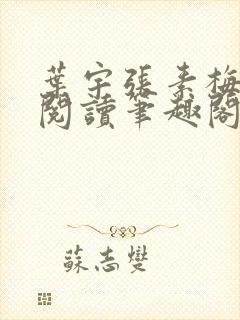 葉宇張素梅
閱讀筆趣閣
蘇志燮